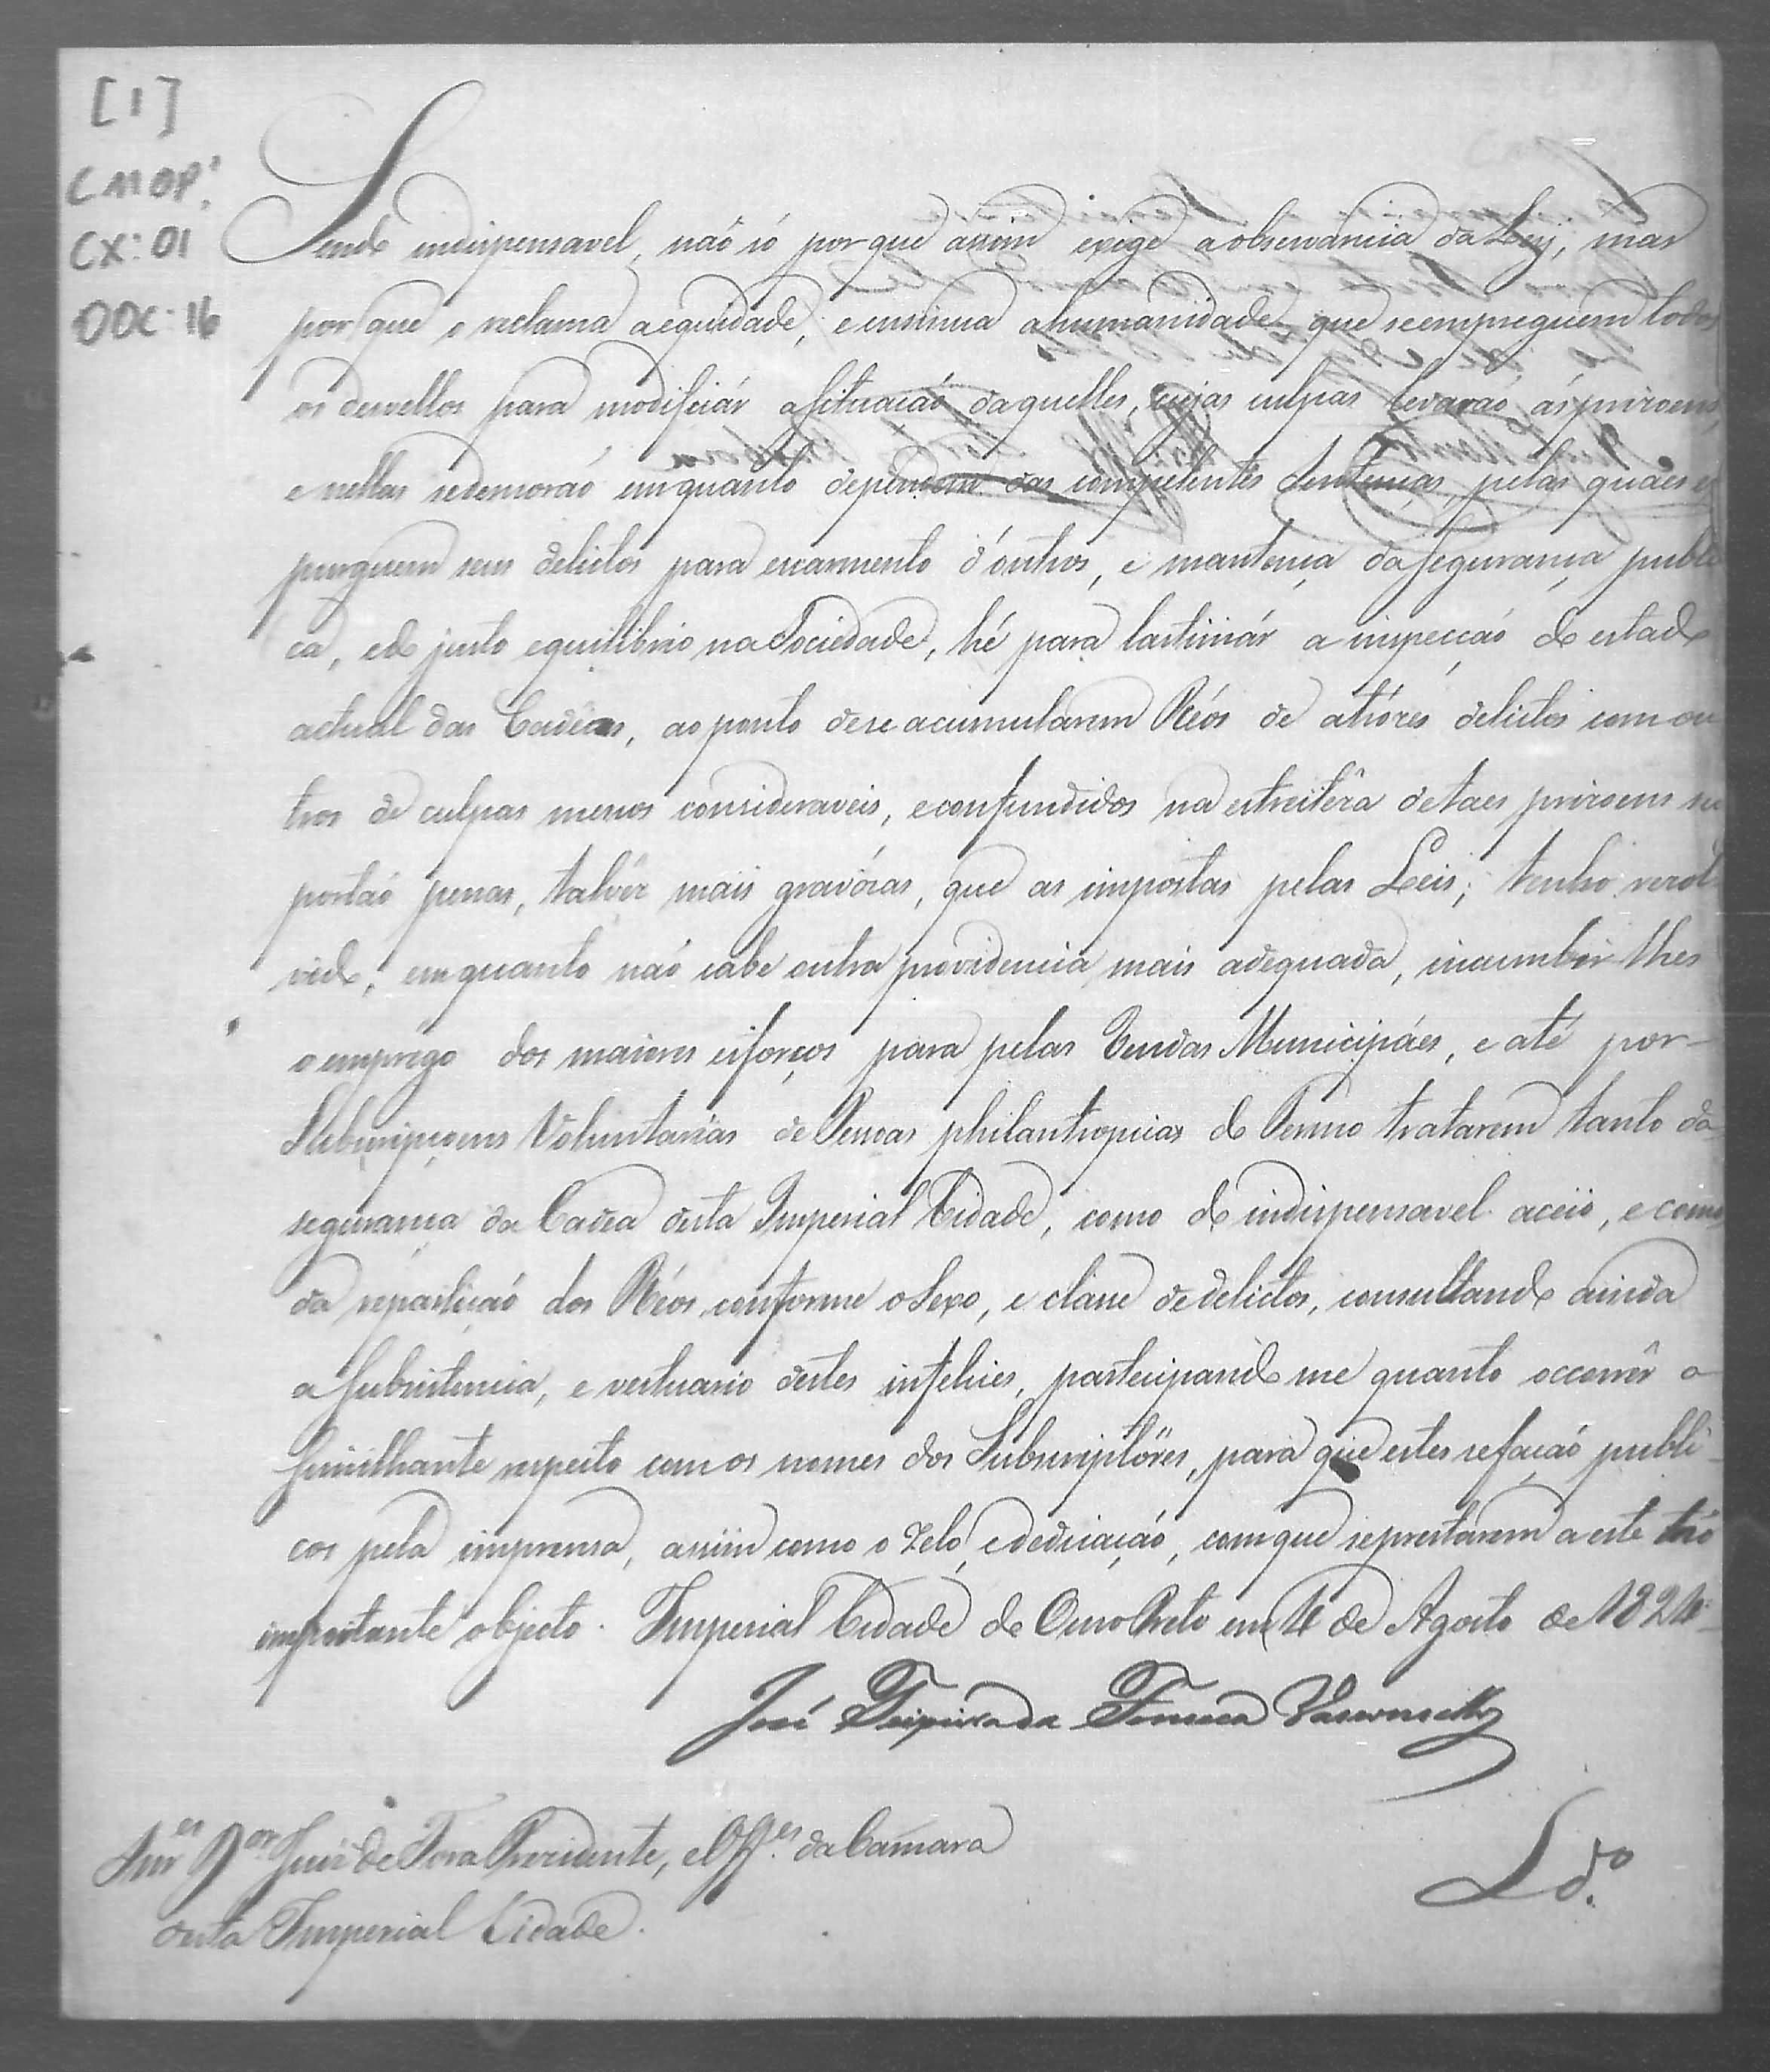 [1]
CMOP:
CX: 01
DOC: 16
Sendo indispensavel, não só porque assim exige a observancia da Ley, mas
por que o reclama a equidade, e ensina a humanidade que se empreguem todos
os desvellos para modificár a situacaõ daquelles, cujas culpas levaraõ ás prisoens,
e nellas se demoraõ em quanto dependem das competentes sentenças, pelas quaes ex
purguem seus delictos para escarmento d'outros, e mantença da segurança publi
ca, e do justo equilibrio na Sociedade, hé para lastimár a inspecçaõ do estado
actual das Cadêas, ao ponto de se acumularem Réos de atrózes delictos com ou
tros de culpas menos consideraveis, e confundidos na estreitêza de taes prisoens su
portaõ penas, talvêz mais gravózas, que as impostas pelas Leis; tenho resol
vido, em quanto naõ cabe outra providencia mais adequada, incumbir-lhes
o emprego dos maiores esforços para pelas Rendas Municipáes, e até por
Subscripçoens Voluntarias de Pessoas philantropicas do Termo tratarem tanto da
segurança da Cadea desta Imperial Cidade, como do indispensavel aceio, e como
da repartiçaõ dos Réos conforme o Sexo, e classe de delictos, consultando ainda
a Subsistencia, e vestuario destes infelices, participando me quanto occorrêr a
Similhante respeito com os nomes dos Subscriptôres, para que estes se façaõ publi
cos pela imprensa, assim como o Zelo, e dedicaçaõ, com que se prestarem a este taõ
importante objecto. Imperial Cidade de Ouro Preto em 4 de Agosto de 1824
José Teixeira da Fonseca Vasconcellos
Snr.es D.or Juiz de Fora Presidente, e Off.es da Camara
desta Imperial Cidade.
L.do